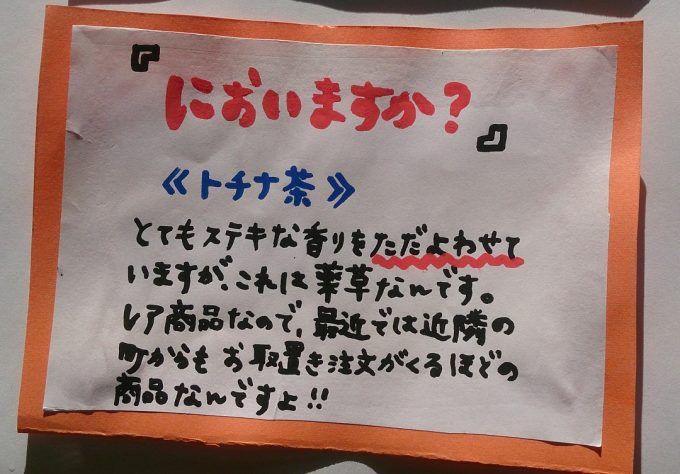 『においますか？』
《トチナ茶》
とてもステキな香りをただよわせて
いますが、これは薬草なんです。
レア商品なので、最近では近隣の
町からもお取置き注文がくるほどの
商品なんですよ!!